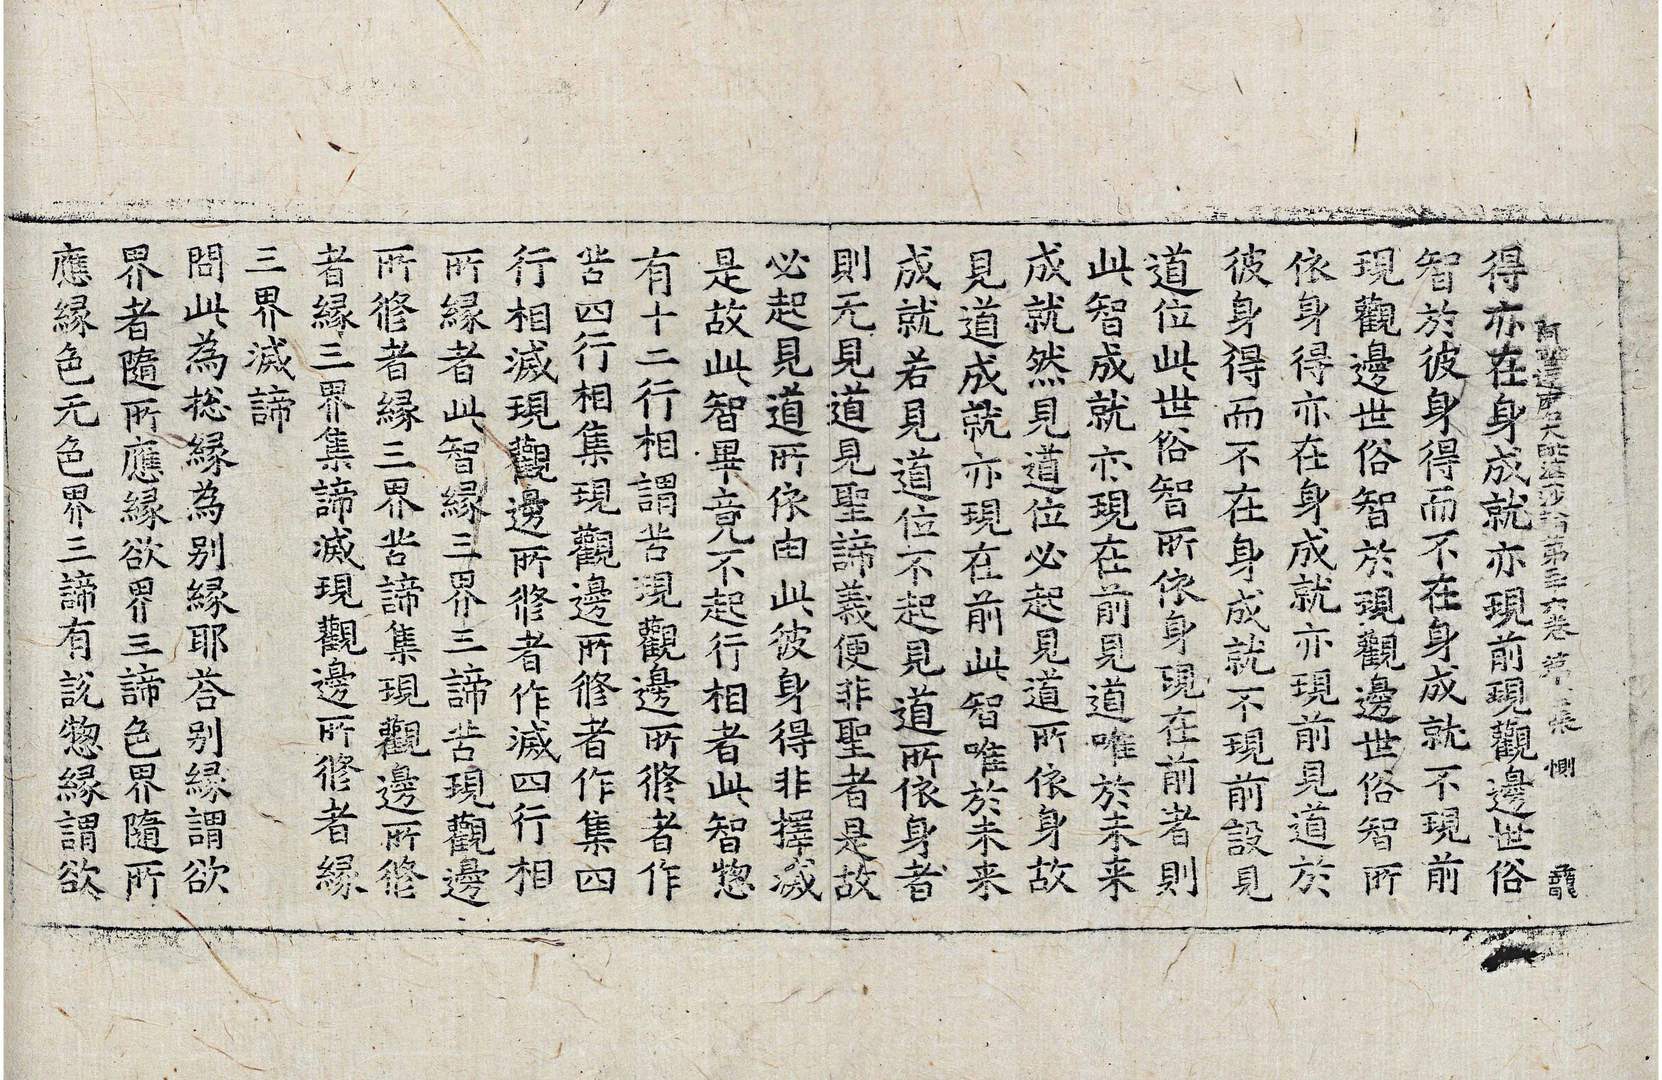 阿毗達磨大毗婆沙論第三六卷 第 張 惻
得亦在身成就亦現前現觀邊世俗
智於彼身得而不在身成就不現前
現觀邊世俗智於現觀邊世俗智所
依身得亦在身成就亦現前見道於
彼身得而不在身成就不現前設見
道位此世俗智所依身現在前者則
此智成就亦現在前見道唯於未来
成就然見道位必起見道所依身故
見道成就亦現在前此智唯於未来
成就若見道位不起見道所依身者
則无見道見聖諦義便非聖者是故
必起見道所依由此彼身得非擇滅
是故此智畢竟不起行相者此智惣
有十二行相謂苦現觀邊所修者作
苦四行相集現觀邊所修者作集四
行相滅現觀邊所修者作滅四行相
所縁者此智縁三界三諦苦現觀邊
所修者縁三界苦諦集現觀邊所修
者縁三界集諦滅現觀邊所修者縁
三界滅諦
問此為捴縁為别縁耶荅别縁謂欲
界者隨所應縁欲界三諦色界隨所
應縁色无色界三諦有說惣縁謂欲